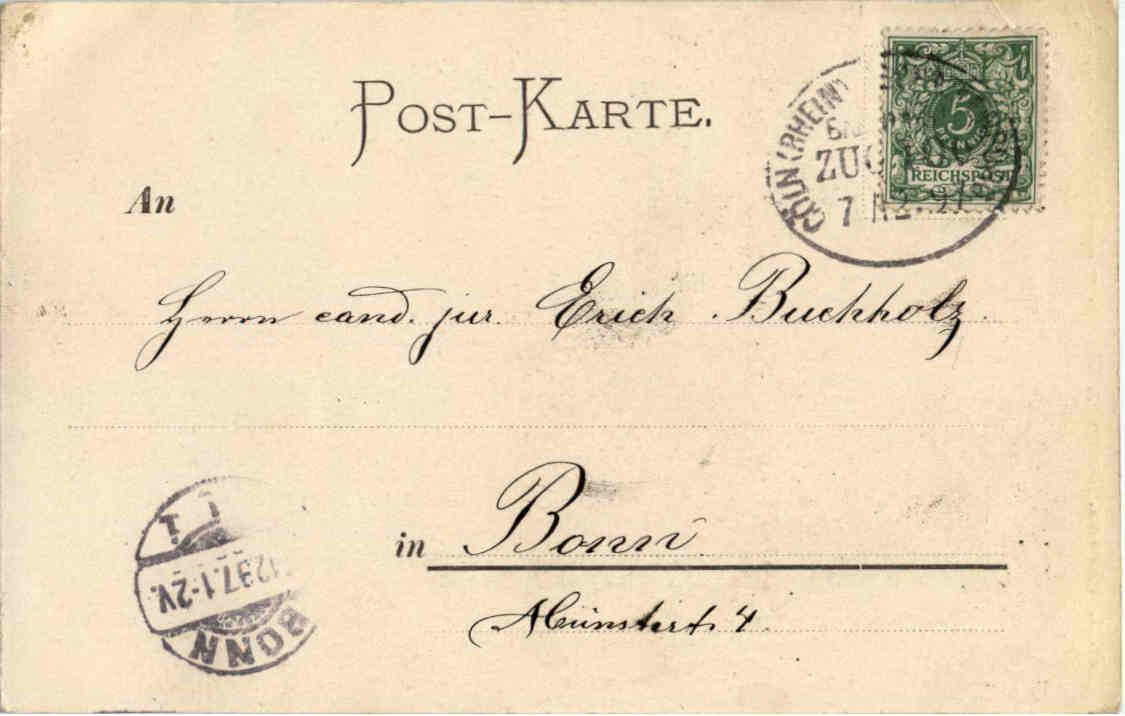 POST-KARTE.
CÖLN (RHEIN)
ZUG
7 12. 97
5
REICHSPOST
An
Herrn cand. jur. Erich Buchholz.
in Bonn
Münsterst. 4
12 97. 1-2V.
BONN